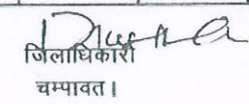 जिलाधिकारी
चम्पावत।